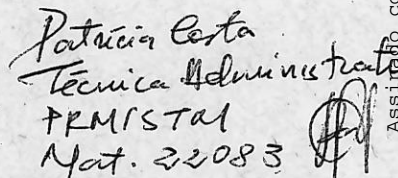 Patrícia Costa
Técnica Administrati
PRM/STM
Mat. 22083
Assinado co